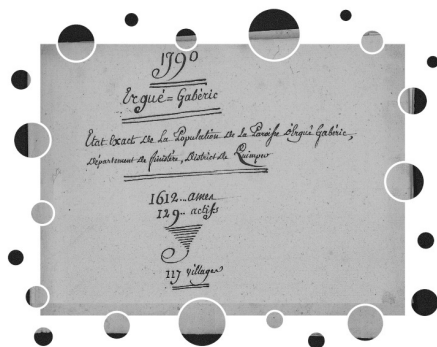 1790
Ergué=Gabéric
Etat Exact De La Population De La Paroisse d'Ergué Gabéric,
Département de finistère, District de Quimper
1612... ames
129.. actifs
117 villages